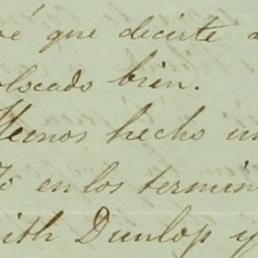 sé que decirte a
olocado bien.
Hemos hecho un
to en los termin
ith Dunlop y